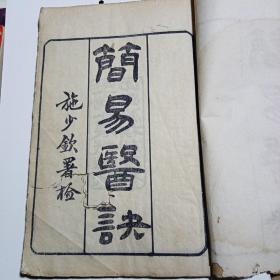 簡易醫訣
施少欽署檢